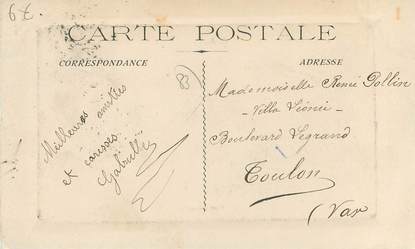 6t
CARTE POSTALE
CORRESPONDANCE
ADRESSE
83
Meilleures amitiés
et caresses
Gabrielle
Mademoiselle Renée Pollin
- Villa Léonie -
Boulevard Legrand
Toulon
(Var